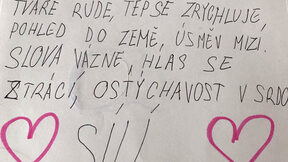 TVÁŘE RUDE, TEP SE ZRYCHLUJE,
POHLED DO ZEMĚ, ÚSMĚV MIZI.
SLOVA VÁZNE, HLAS SE
ZTRÁCÍ, OSTÝCHAVOST V SRDC
SÍLÍ